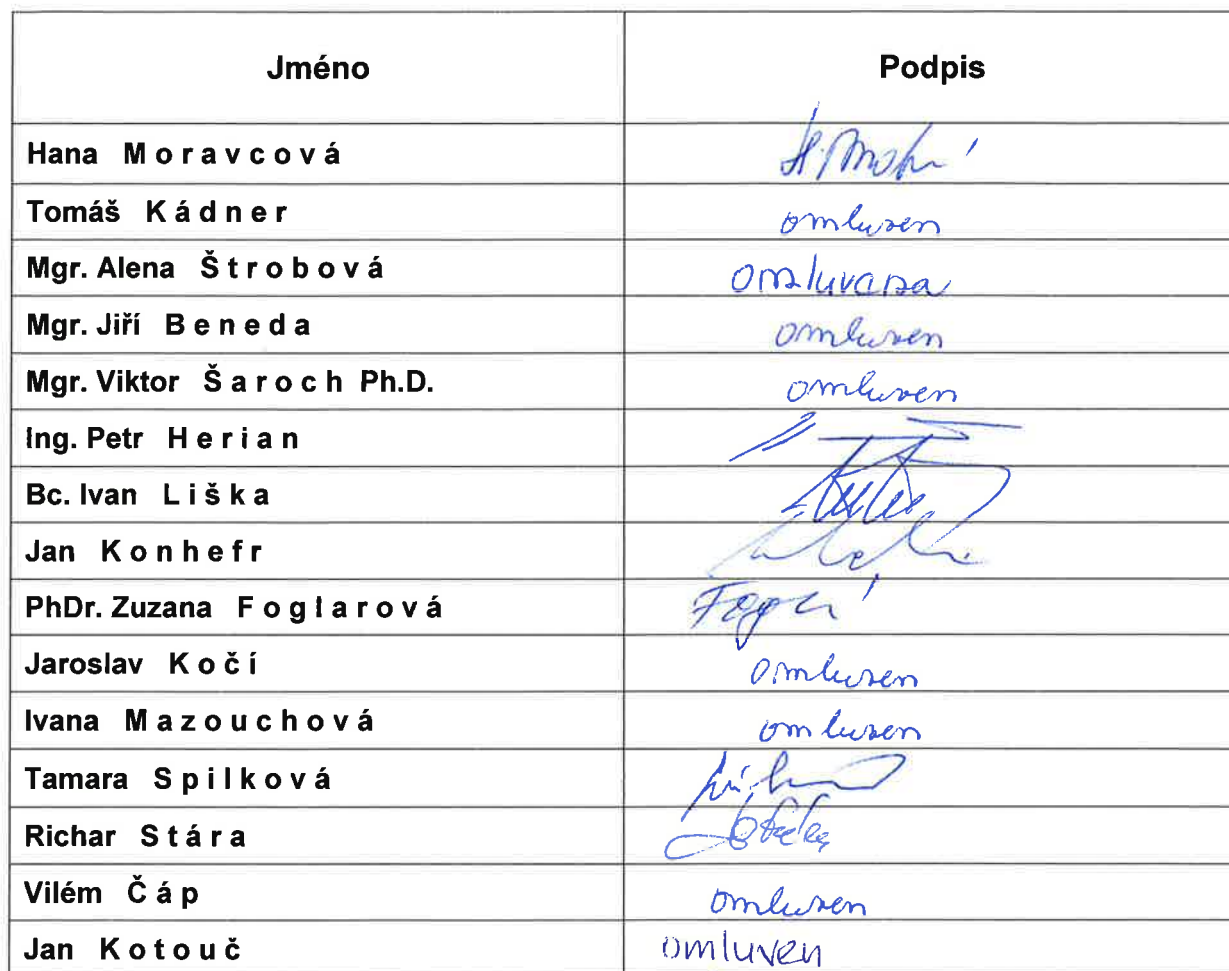 Jméno Podpis
Hana Moravcová
Tomáš Kádner omluven
Mgr. Alena Štrobová omluvena
Mgr. Jiří Beneda omluven
Mgr. Viktor Šaroch Ph.D. omluven
Ing. Petr Herian
Bc. Ivan Liška
Jan Konhefr
PhDr. Zuzana Foglarová
Jaroslav Kočí omluven
Ivana Mazouchová omluven
Tamara Spilková
Richar Stára
Vilém Čáp omluven
Jan Kotouč omluven